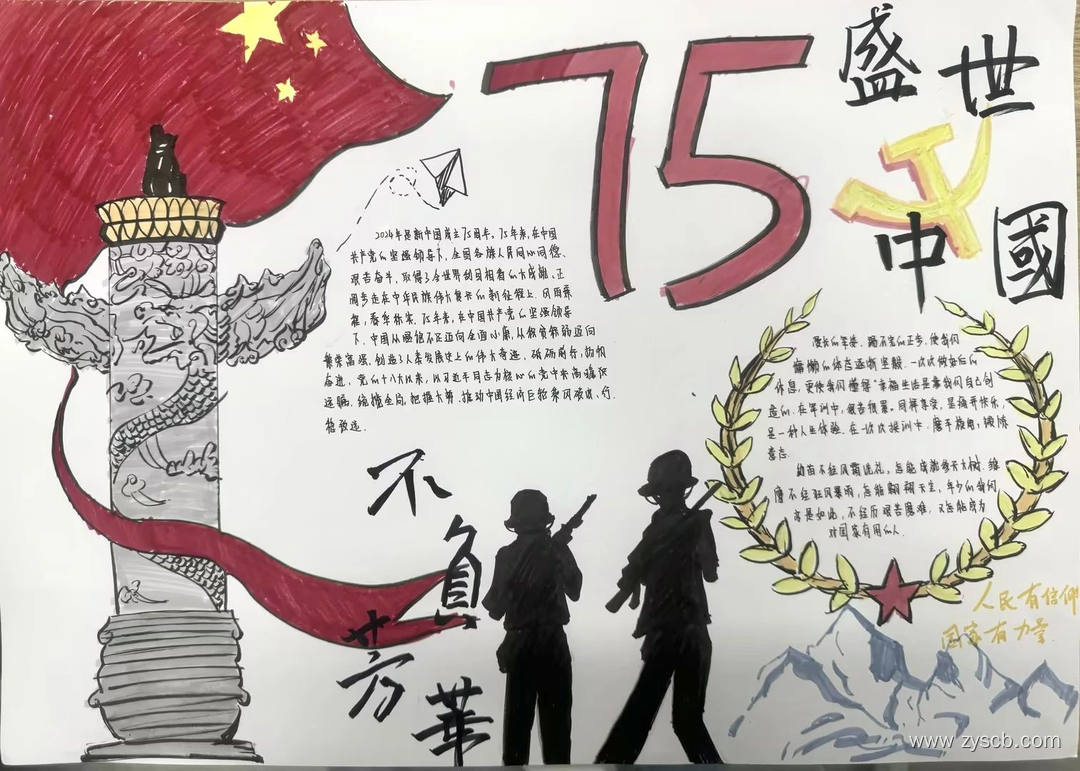 75
盛世
中國
2024年是新中国成立75周年。75年来,在中国
共产党的坚强领导下,全国各族人民同心同德、
艰苦奋斗,取得了令世界刮目相看的大成就,正
阔步走在中华民族伟大复兴的新征程上。风雨兼
程,春华秋实。75年来,在中国共产党的坚强领导
下,中国从温饱不足迈向全面小康,从积贫积弱迈向
繁荣富强,创造了人类发展史上的伟大奇迹。砥砺前行,勃
奋进。党的十八大以来,以习近平同志为核心的党中央高瞻
远瞩、统揽全局、把握大势、推动中国经济巨轮乘风破浪、行
稳致远.
不负
芳華
漫长的等待,踏不完的正步,使我们
慵懒的体态逐渐坚毅.一次次做每后的
休息,更使我们懂得“幸福生活是靠我们自己创
造的.在军训中,艰苦、同样享受,是痛并快乐,
是一种人生体验.在一次次操训中.磨平棱角,锻炼
意志.
幼苗不经风霜洗礼,怎能成就参天大树.雄
鹰不经狂风暴雨,怎能翱翔天空,年少的我们
亦是如此,不经历艰苦磨难,又怎能成为
对国家有用的人.
人民有信仰
国家有力量
www.zyscb.com